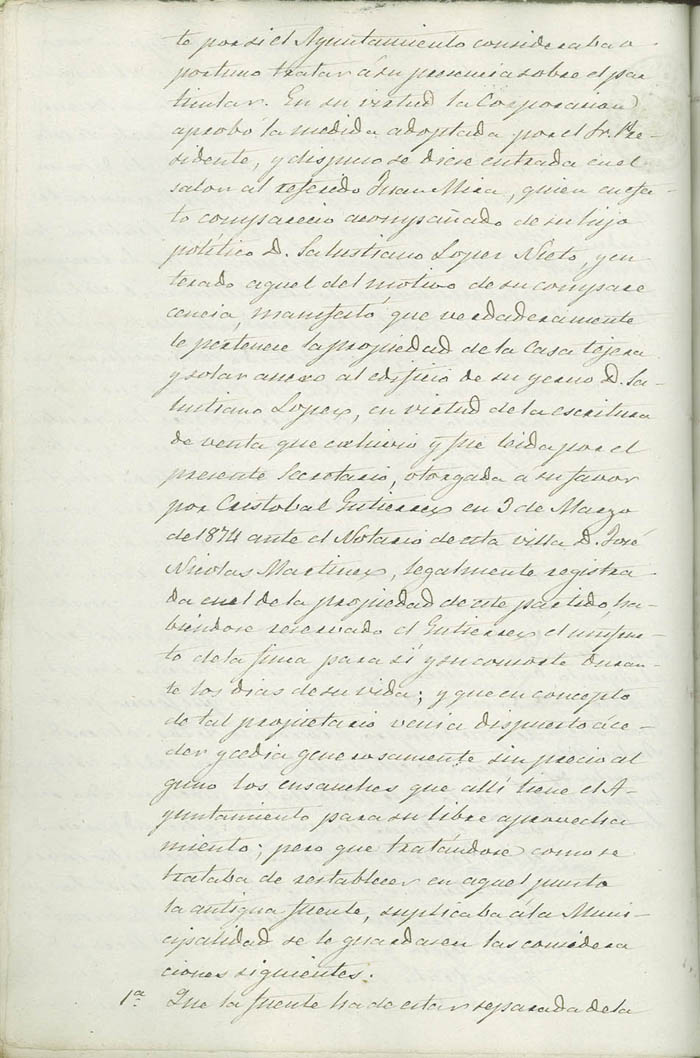 te por si el Ayuntamiento consideraba o
portuno tratar á su presencia sobre el par
ticular. En su virtud la Corporacion
aprobó la medida adoptada por el Sr. Pre-
sidente, y dispuso se diese entrada en el
salon al referido Juan Mira, quien en efec
to compareció acompañado de su hijo
politico D. Salustiano Lopez Nieto, y en
terado aquel del motivo de su compare
cencia, manifestó que verdaderamente
le pertenece la propiedad de la Casa tejera
y solar anexo al edificio de su yerno D. Sa-
lustiano Lopez, en virtud de la escritura
de venta que exhivio y fue leida por el
presente Secretario, otorgada a su favor
por Cristobal Gutierrez en 3 de Marzo
de 1874 ante el Notario de esta villa D. José
Nicolas Martinez, legalmente registra
da en el de la propiedad de este partido, ha-
biendose reservado el Gutierrez el usufruc-
to de la finca para sí y su consorte duran-
te los dias de su vida; y que en concepto
de tal propietario venia dispuesto á ce-
der y cedia generosamente sin precio al
guno los ensanches que allí tiene el A-
yuntamiento para su libre aprovecha
miento; pero que tratándose como se
trataba de restablecer en aquel punto
la antigua fuente, suplicaba á la Muni-
cipalidad se le guardasen las considera
ciones siguientes.
1ª Que la fuente ha de estar separada de la